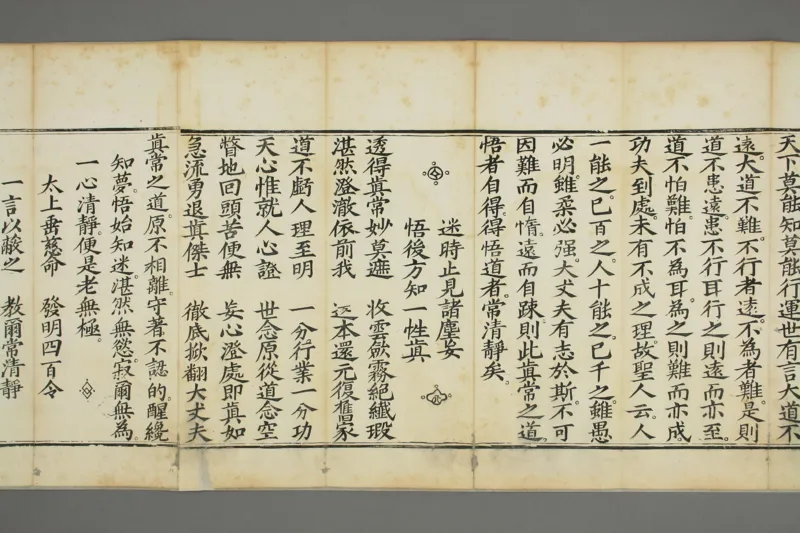 天下莫能知莫能行運世有言大道不
遠。大道不難。不行者遠。不為者難。是則
道不患遠。患不行耳。行之則遠而亦至。
道不怕難。怕不為耳。為之則難而亦成
功夫到處。未有不成之理。故聖人云。人
一能之。已百之。人十能之。已千之。雖愚
必明。雖柔必强。大丈夫有志於斯。不可
因難而自惰。遠而自疎。則此眞常之道。
悟者自得。得悟道者。常清靜矣。
迷時止見諸塵妄
悟後方知一性眞
透得眞常妙莫遮 收雲歛霧絕纖瑕
湛然澄澈依前我 返本還元復舊家
道不虧人理至明 一分行業一分功
天心惟就人心證 世念原從道念空
瞥地回頭苦便無 妄心澄處即眞如
急流勇退眞傑士 徹底掀翻大丈夫
眞常之道。原不相離。守著不認的。醒纔
知夢。悟始知迷。湛然無慾。寂爾無為。
一心清靜。便是老無極。
太上垂慈命 發明四百令
一言以蔽之 教爾常清靜